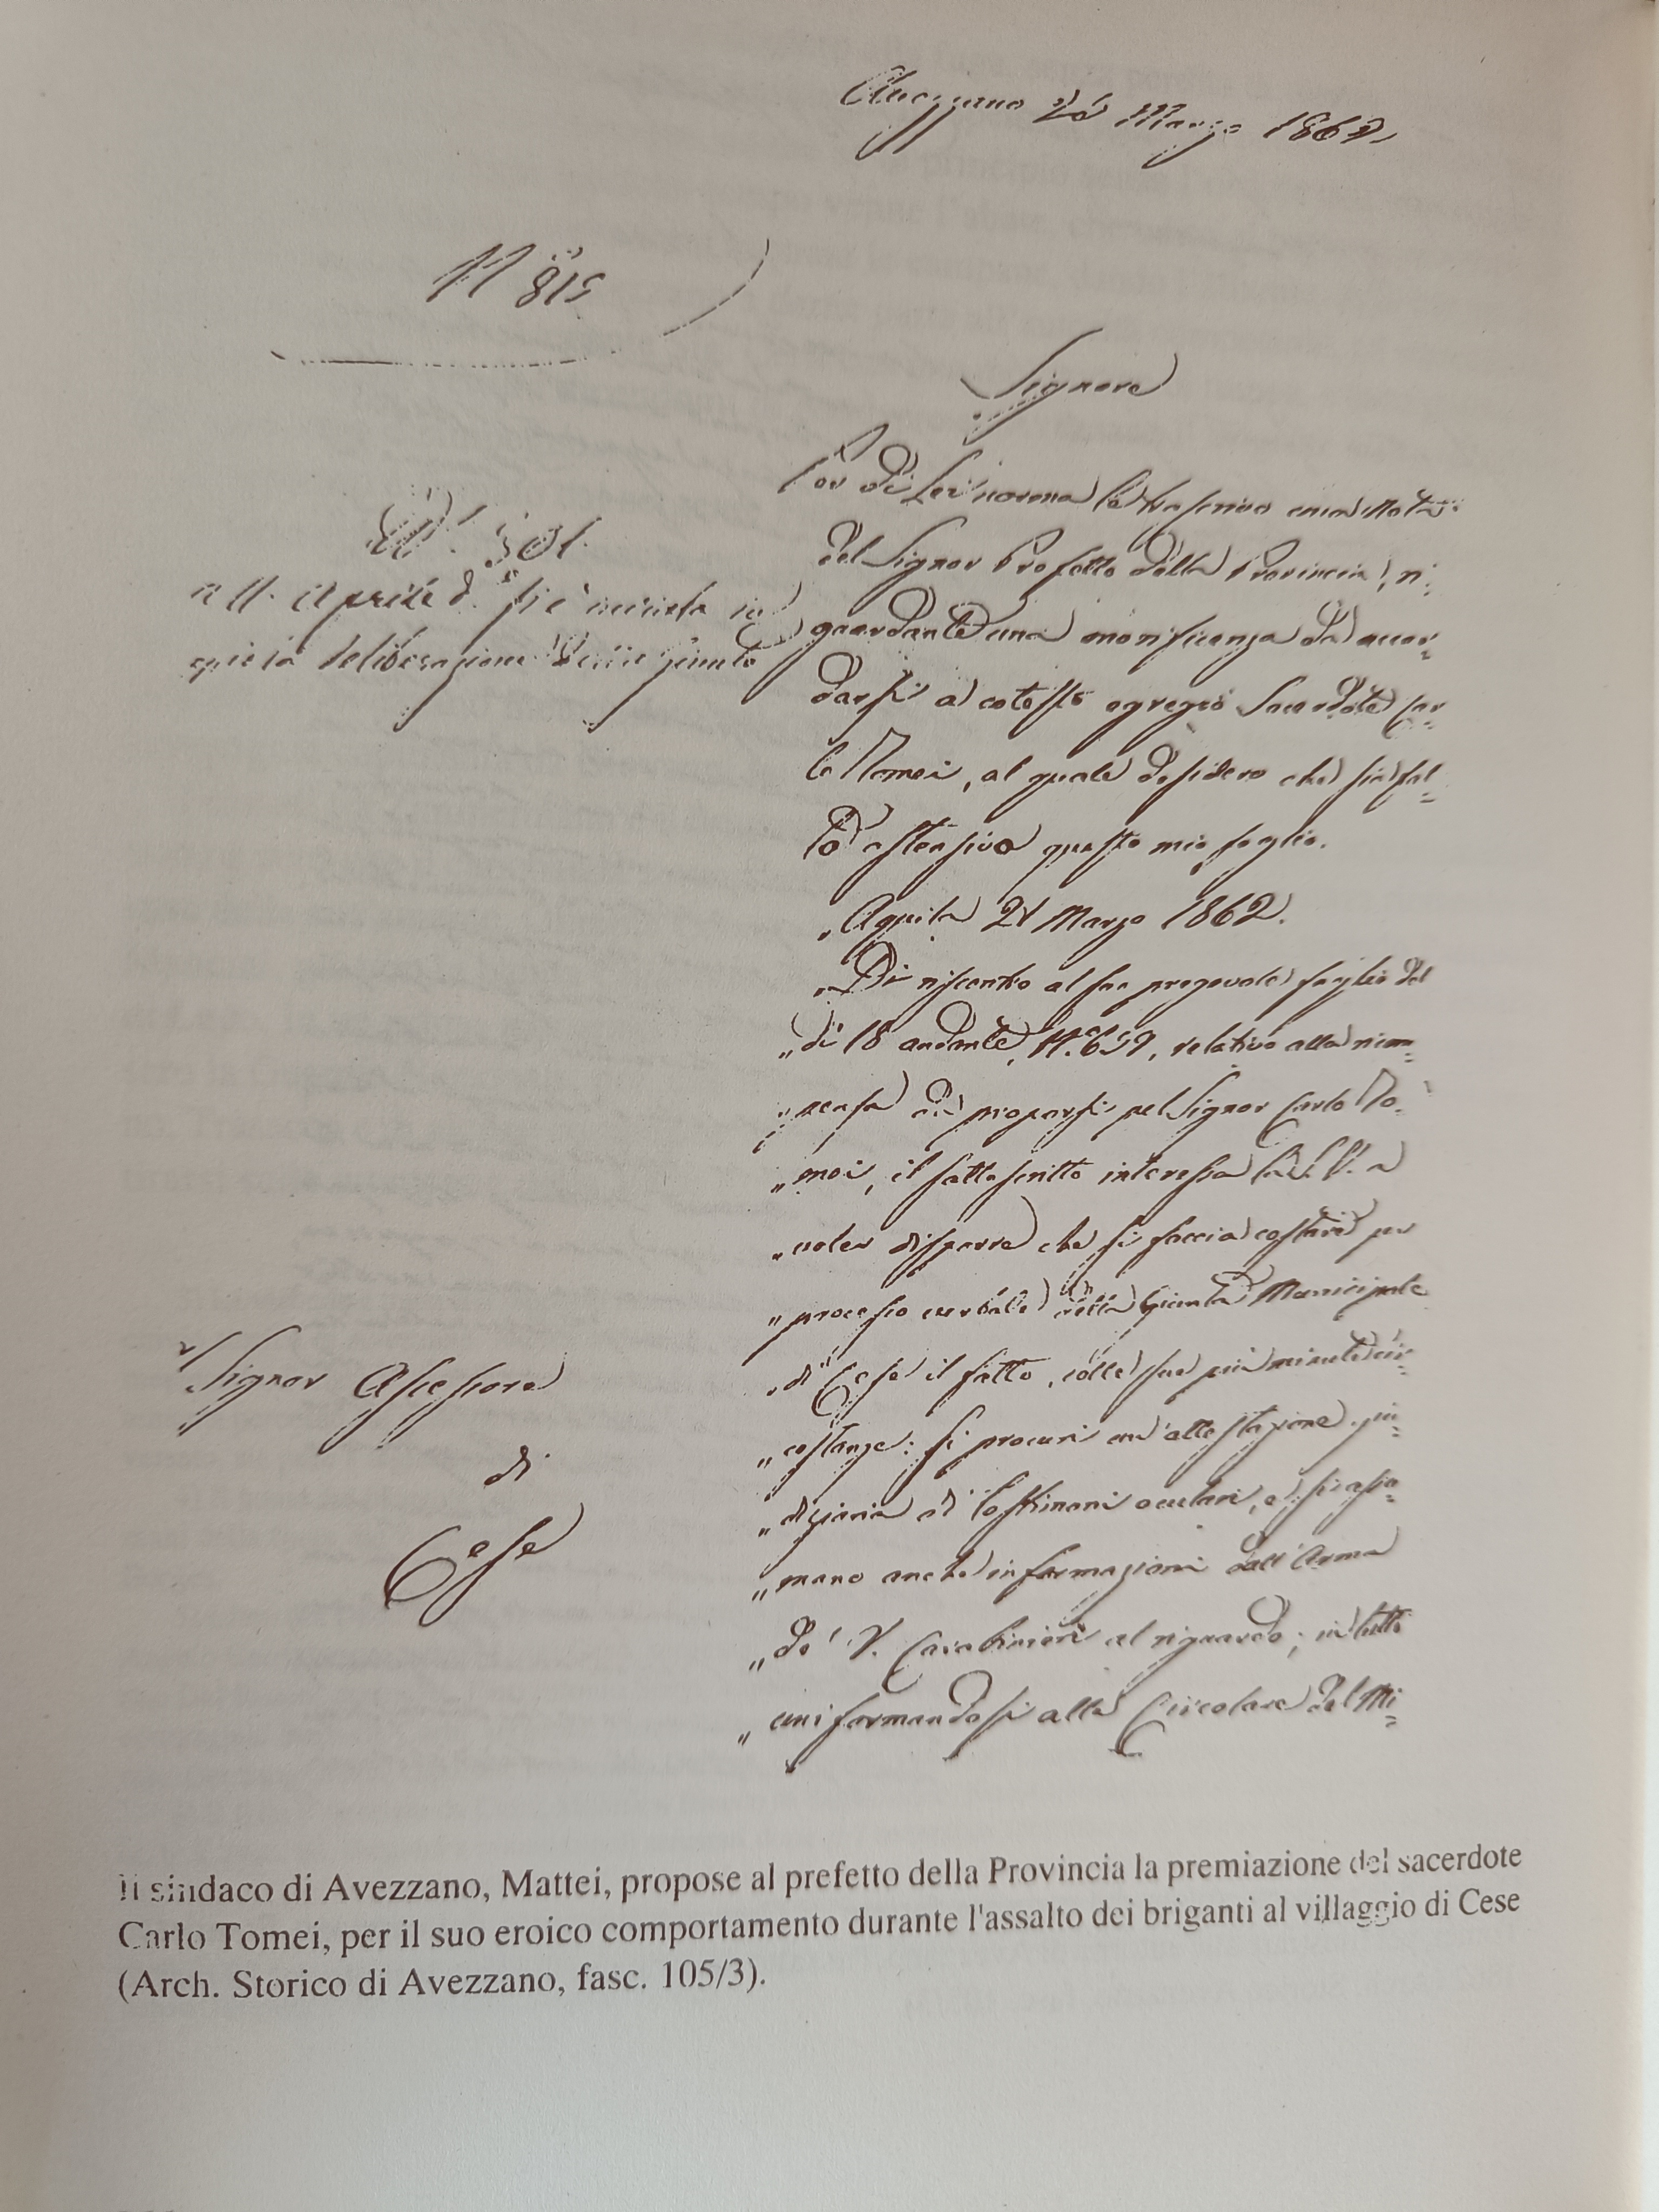 Avezzano 26 Marzo 1862
N.° 815
Signore
Per di Lei norma Le trascrivo una Nota
del Signor Prefetto della Provincia, ri=
guardante una onorificenza da accor=
darsi a cotesto egregio Sacerdote Car=
lo Tomei, al quale desidero che sia fat=
to ostensivo questo mio foglio.
„Aquila 21 Marzo 1862.
„Di riscontro al suo pregevole foglio del
„dì 18 andante, N.° 659, relativo alla ricom=
„pensa da proporsi pel Signor Carlo To=
„mei, il sottoscritto interessa la S. V. a
„voler disporre che si faccia costare per
„processo verbale della Giunta Municipale
„di Cese il fatto, colle sue più minute cir=
„costanze: si procuri un'attestazione giu=
„diziaria di testimoni oculari, e si assu=
„mano anche informazioni dall'Arma
„de' R. Carabinieri al riguardo; in tutto
„uniformandosi alla Circolare del Mi=
N.° 301.
a 11. Aprile d.° si è inviata
deliberazione della giunta
Signor Assessore
di
Cese
Il sindaco di Avezzano, Mattei, propose al prefetto della Provincia la premiazione del sacerdote
Carlo Tomei, per il suo eroico comportamento durante l'assalto dei briganti al villaggio di Cese
(Arch. Storico di Avezzano, fasc. 105/3).